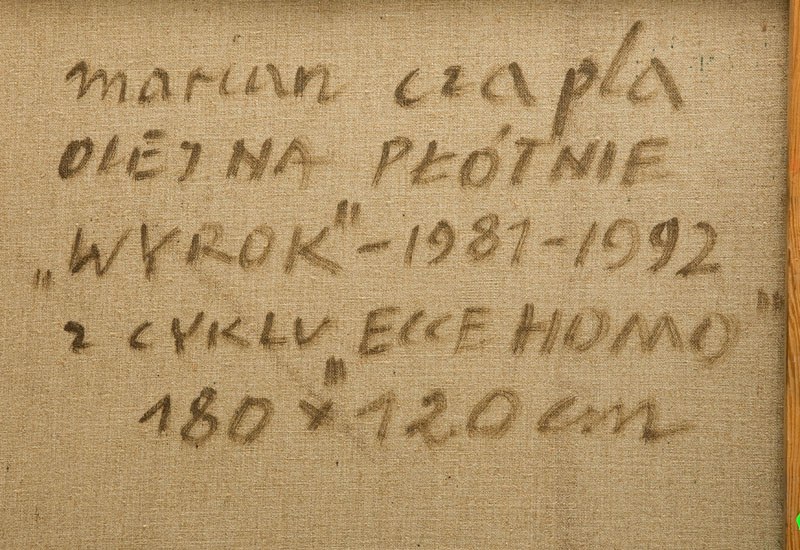 marian czapla
OLEJ NA PŁÓTNIE
„WYROK" - 1981 - 1992
z CYKLU "ECCE HOMO"
180 x 120 cm